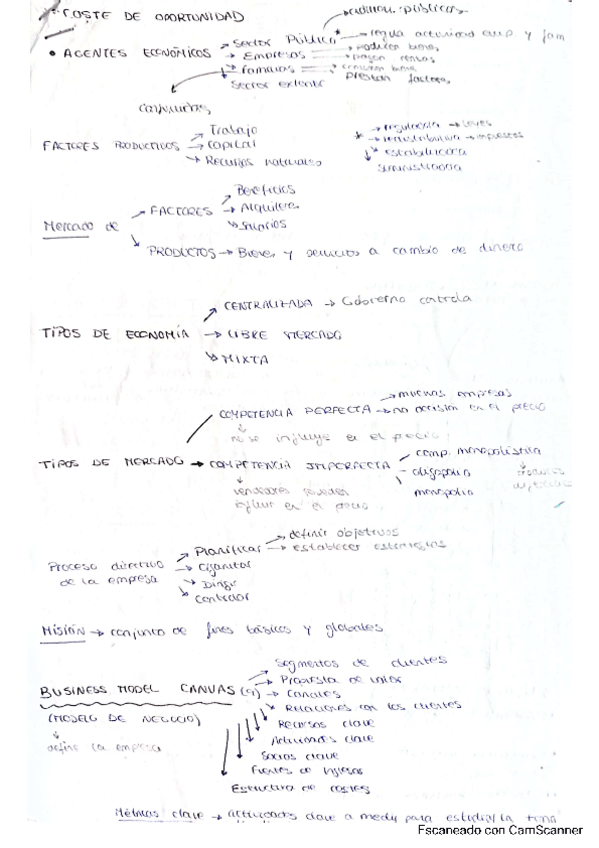 COSTE DE OPORTUNIDAD
públicas
• AGENTES ECONÓMICOS → Sector Público → regula actividad emp. y fam
→ Empresas → producen bienes
→ pagan rentas
→ Familias → consumen bienes
prestan factores
Sector exterior
FACTORES PRODUCTIVOS → Trabajo
→ Capital
→ Recursos naturales
→ reguladora → leyes
→ redistributiva → impuestos
→ estabilizadora
suministradora
Mercado de → FACTORES → Beneficios
→ Alquileres
→ Salarios
→ PRODUCTOS → Bienes y servicios a cambio de dinero
TIPOS DE ECONOMÍA → CENTRALIZADA → Gobierno controla
→ LIBRE MERCADO
→ MIXTA
TIPOS DE MERCADO → COMPETENCIA PERFECTA → muchas empresas
→ no decisión en el precio
no se influye en el precio
→ COMPETENCIA IMPERFECTA → comp. monopolística
- oligopolio
monopolio
vendedores pueden
influir en el precio
Proceso directivo
de la empresa
→ Planificar → definir objetivos
→ establecer estrategias
→ Organizar
→ Dirigir
→ Controlar
Misión → conjunto de fines básicos y globales
BUSINESS MODEL CANVAS (9)
(MODELO DE NEGOCIO)
define la empresa
→ Segmentos de clientes
→ Propuesta de valor
→ Canales
→ Relaciones con los clientes
Recursos clave
Actividades clave
Socios clave
Fuentes de ingresos
Estructura de costes
Métricas clave → actividades clave a medir para estudiar la
Escaneado con CamScanner